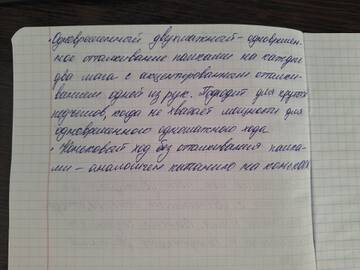 • Одновременный двухшажный – одновремен-
ное отталкивание палками на каждые
два шага с акцентированным отталки-
ванием одной из рук. Подходит для крутых
подъемов, когда не хватает мощности для
одновременного одношажного хода
• Коньковый ход без отталкивания палка-
ми – аналогичен катанию на коньках